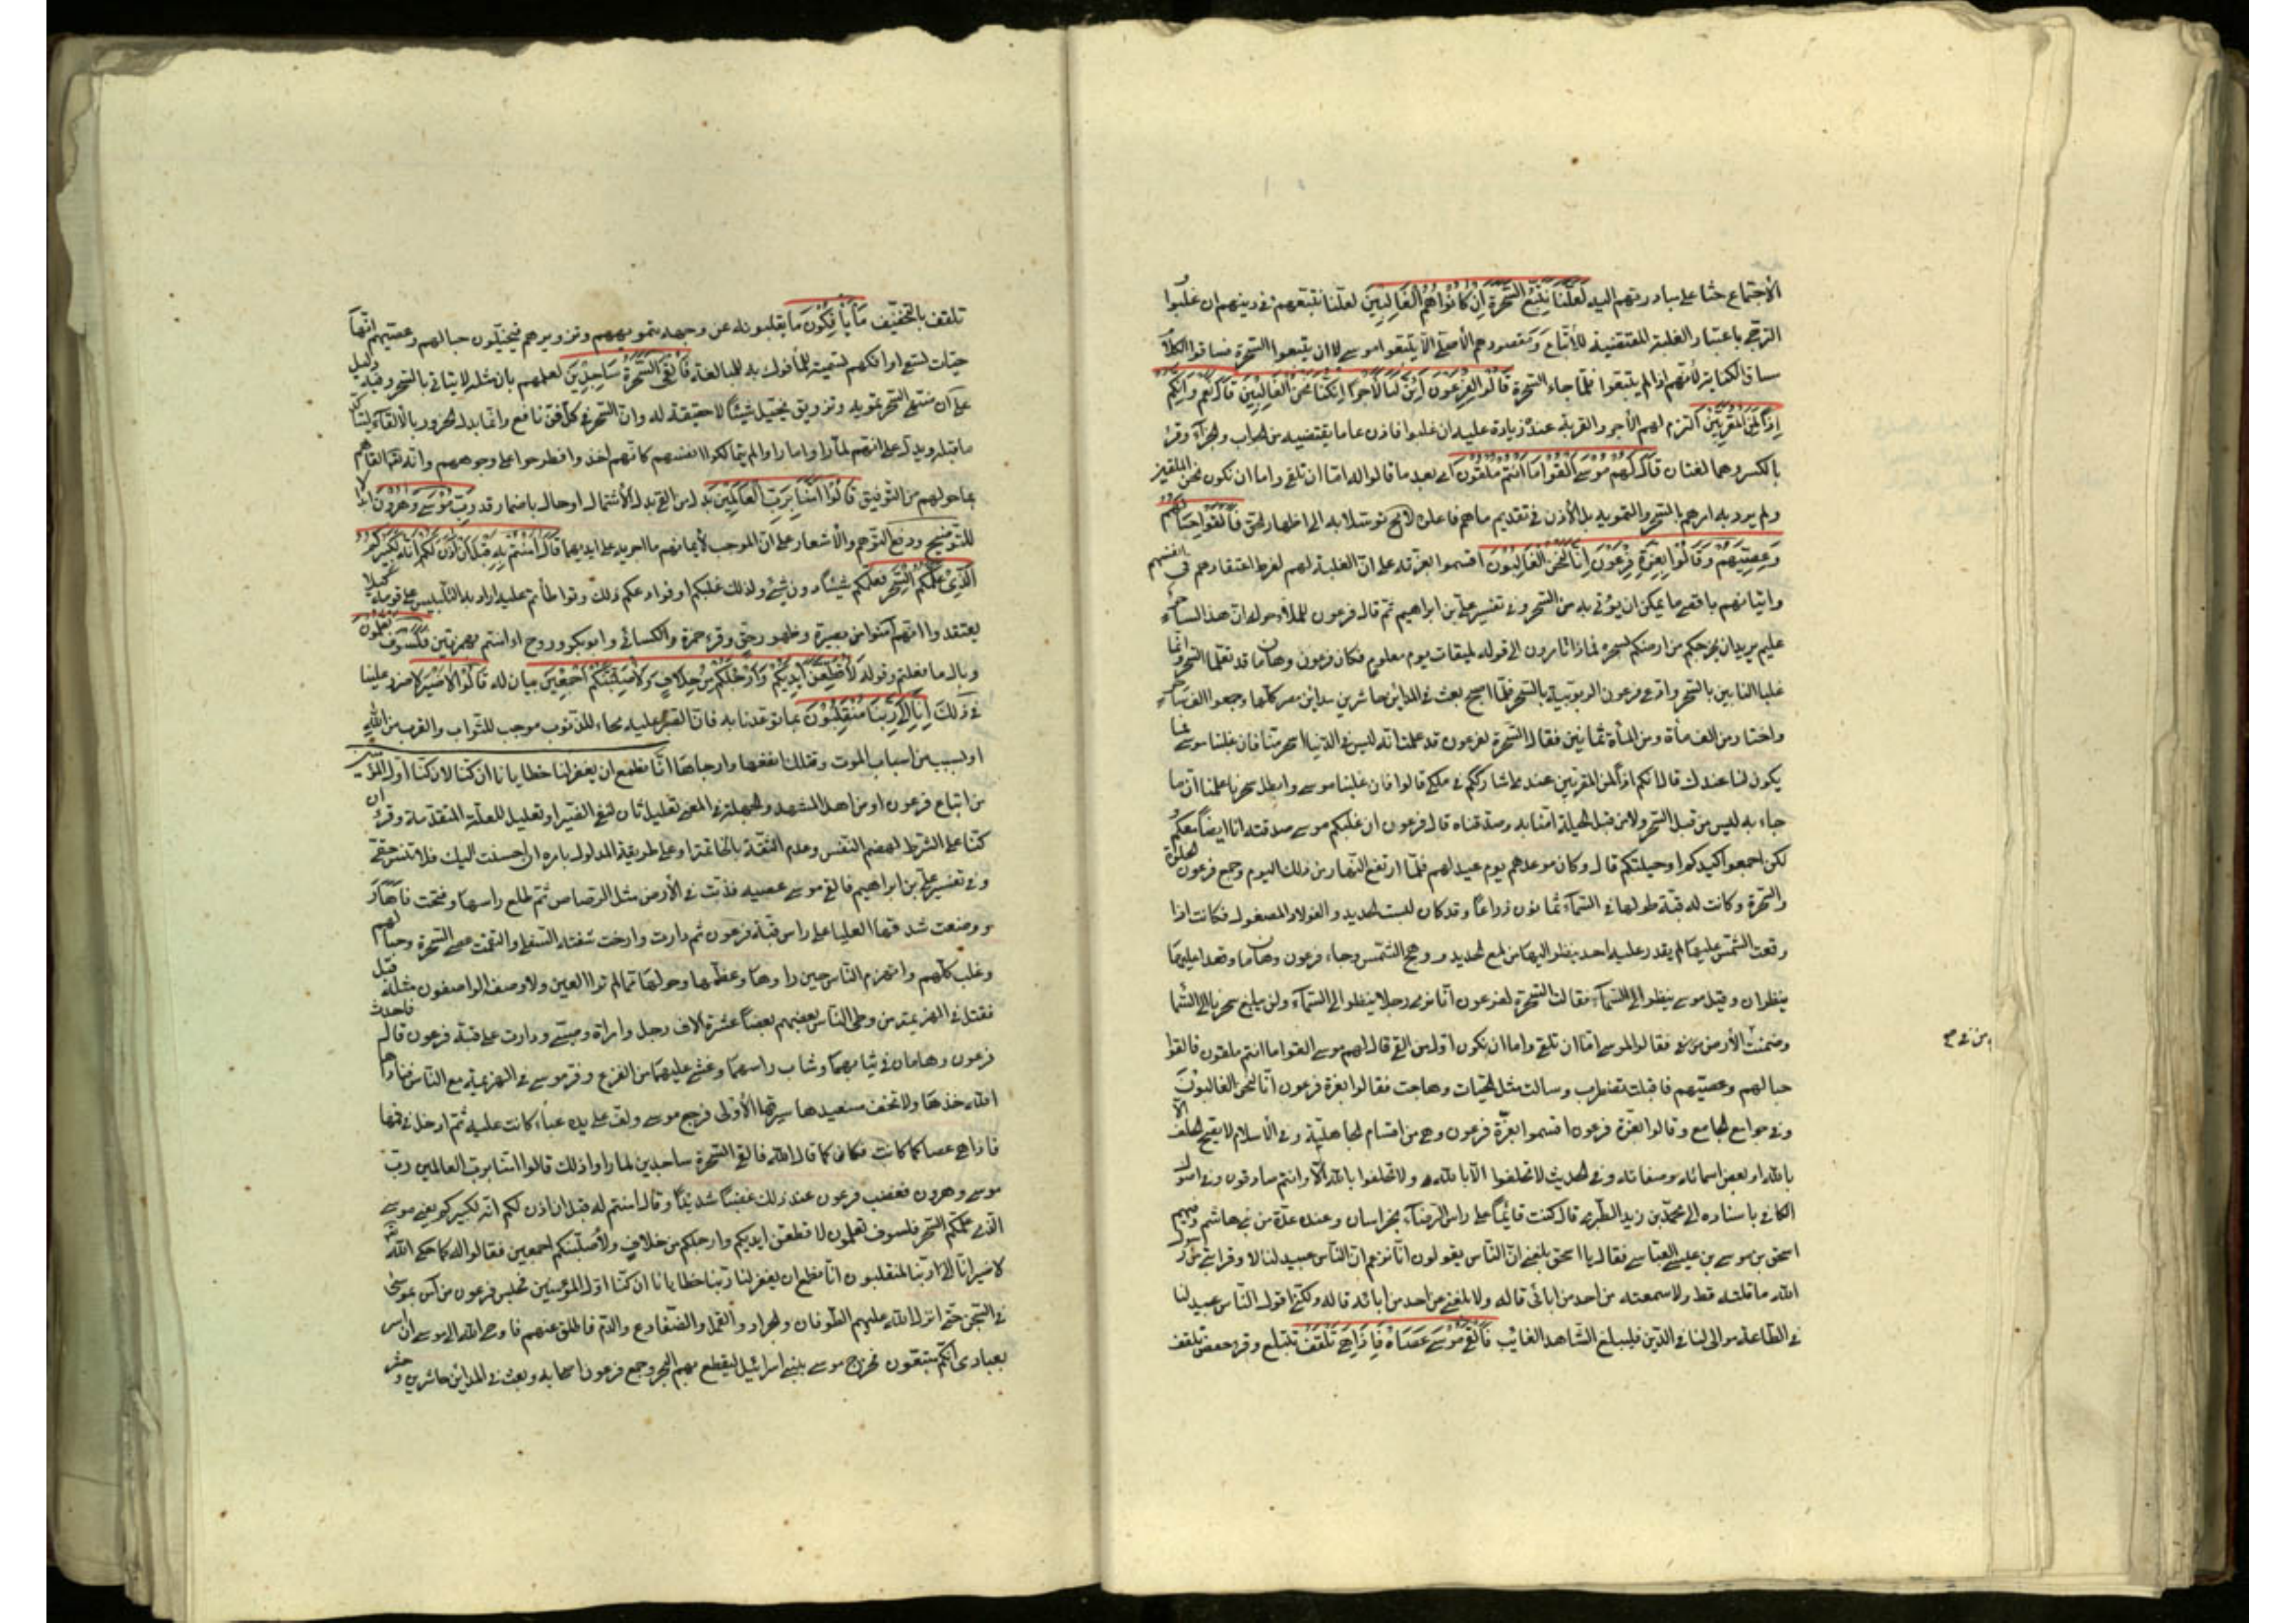 الأجتماع حثا على مبادرتهم اليه لَعَلَّنَا نَتَّبِعُ السَّحَرَةَ اِنْ كَانُوا هُمُ الْغَالِبِينَ لعلّنا نتبعهم في دينهم ان غلبوا و
الترجّى باعتبار الغلبة المقتضية للأتّباع و مقصودهم الأصلىّ الّا يتّبعوا موسى لا ان يتّبعوا السّحرة فساقوا الكلام
مساق الكناية لأنّهم اذا لم يتبعوا فلمّا جاء السّحرة قَالُوا لِفِرْعَوْنَ اَئِنَّ لَنَا لَاَجْرًا اِنْ كُنَّا نَحْنُ الْغَالِبِينَ قَالَ نَعَمْ وَاِنَّكُمْ
اِذًا لَمِنَ الْمُقَرَّبِينَ التزم لهم الأجر والقربة عنده زيادة عليه ان غلبوا فاذن على ما يقتضيه من الجواب والجزآء وقرئ
بالكسر وهما لغتان قَالَ لَهُمْ مُوسَى اَلْقُوا مَا اَنْتُمْ مُلْقُونَ اى بعد ما قالوا له امّا ان تلقى واما ان نكون نحن الملقين
ولم يرد به امرهم بالسّحر والتمويه بل الأذن فى تقديم ما هم فاعلوه لا محالة توسّلا به الى اظهار الحق فَاَلْقَوْا حِبَالَهُمْ
وَعِصِيَّهُمْ وَقَالُوا بِعِزَّةِ فِرْعَوْنَ اِنَّا لَنَحْنُ الْغَالِبُونَ اقسموا بعزّته على انّ الغلبة لهم لفرط اعتقادهم فى انفسهم
واتيانهم باقصى ما يمكن ان يؤتى به من السّحر وفى تفسير علىّ بن ابراهيم ثم قال فرعون للملاء حوله انّ هذا لساحر
عليم يريد ان يخرجكم من ارضكم بسحره فماذا تأمرون الى قوله لميقات يوم معلوم فكان فرعون وهامان قد تعلّما السّحر وانّما
غلبا النّاس بالسّحر وادّعى فرعون الربوبية بالسّحر فلمّا اصبح بعث فى المداين حاشرين مداين مصر كلّها وجمعوا الف ساحر
واختاروا من الف مأة ومن المأة ثمانين فقال السّحرة لفرعون قد علمت انّه ليس فى الدّنيا اسحر منّا فان غلبنا موسى فما
يكون لنا عندك قال انّكم اذاً لمن المقرّبين عندى اشارككم فى ملكى قالوا فان غلبنا موسى وابطل سحرنا علمنا انّ ما
جاء به ليس من قبل السّحر ولا من قبل الحيلة آمنّا به وصدّقناه قال فرعون ان غلبكم موسى صدّقته انا ايضاً معكم و
لكن اجمعوا كيدكم اى حيلتكم قال وكان موعدهم يوم عيد لهم فلمّا ارتفع النّهار من ذلك اليوم وجمع فرعون الخلق
والسّحرة وكانت له قبة طولها فى السّمآء ثمانون ذراعاً وقد كان لبست الحديد والفولاذ المصقول فكانت اذا
وقعت الشّمس عليها لم يقدر عليه احد ينظر اليها من لمع الحديد ووهج الشّمس وجاء فرعون وهامان وقعدا عليها
ينظران وقبل موسى ينظر الى السّمآء فقالت السّحرة لفرعون انّا نرى رجلا ينظر الى السّمآء ولن يبلغ سحرنا الى السّما
وضمنت الأرض فقالوا لموسى امّا ان تلقى واما ان نكون اوّل من القى قال لهم موسى القوا ما انتم ملقون فالقوا
من فى ح
حبالهم وعصيّهم فاقبلت تضطرب وسالت مثل الحيّات وهاجت فقالوا بعزة فرعون انّا لنحن الغالبون
وفى جوامع الجامع وقالوا بعزّة فرعون اقسموا بعزّة فرعون وهى من اقسام الجاهليّة وفى الأسلام لا يصح الحلف الّا
بالله او بعض اسمائه وصفاته وفى الحديث لا تحلفوا الّا بالله ولا تحلفوا بالله الّا وانتم صادقون وفى اصول
الكافى باسناده الى محمّد بن زيد الطّبرى قال كنت قايماً على راس الرّضا بخراسان وعنده عدّة من بنى هاشم وفيهم
اسحق بن موسى بن عيسى العبّاسى فقال يا اسحق بلغنى انّ النّاس يقولون انّا نزعم انّ النّاس عبيد لنا لا وقرابتى من رسول
الله ما قلته قط ولا سمعته من احد من آبائى قاله ولا بلغنى عن احد من آبائه قاله ولكنّى اقول النّاس عبيد لنا
فى الطّاعة موالى لنا فى الدّين فليبلّغ الشّاهد الغائب فَاَلْقَى مُوسَى عَصَاهُ فَاِذَا هِىَ تَلْقَفُ تبتلع وقرء حفص تلقف
تلقف بالتّخفيف مَا يَأْفِكُونَ ما يقلبونه عن وجهه بتمويههم وتزويرهم فيخيّلون حبالهم وعصيّهم انّها
حيّات تسعى او افكهم تسمية للمأفوك به للمبالغة فَاُلْقِىَ السَّحَرَةُ سَاجِدِينَ لعلمهم بان مثله لا يتاتى بالسّحر وفيه دليل
على انّ منتهى السّحر تمويه وتزويق يخيّل شيئاً لا حقيقة له وانّ التبحّر فى كلّ فنّ نافع وانّما بدل الخرور بالألقآء ليشاكل
ما قبله ويدلّ على انّهم لمّا راوا ما راوا لم يتمالكوا انفسهم كانّهم اخذوا فطرحوا على وجوههم وانّه تعالى القاهم
بما خوّلهم من التّوفيق قَالُوا آمَنَّا بِرَبِّ الْعَالَمِينَ بدل من القى بدل الأشتمال او حال باضمار قد رَبِّ مُوسَى وَهَرُونَ ابدال
للتّوضيح ودفع التّوهّم والأشعار على انّ الموجب لأيمانهم ما اجراه على ايديهما قَالَ آمَنْتُمْ لَهُ قَبْلَ اَنْ آذَنَ لَكُمْ اِنَّهُ لَكَبِيرُكُمُ
الَّذِى عَلَّمَكُمُ السِّحْرَ فعلّمكم شيئاً دون شىء ولذلك غلبكم او فواعدكم ذلك وتواطأتم عليه اراد به التّلبيس على قومه كيلا
يعتقدوا انّهم آمنوا عن بصيرة وظهور حقّ وقرء حمزة والكسائى وابوبكر وروح أآمنتم بهمزتين فَلَسَوْفَ تَعْلَمُونَ
وبال ما فعلتم وقوله لَاُقَطِّعَنَّ اَيْدِيَكُمْ وَاَرْجُلَكُمْ مِنْ خِلَافٍ وَلَاُصَلِّبَنَّكُمْ اَجْمَعِينَ بيان له قَالُوا لَا ضَيْرَ لا ضرر علينا
فى ذلك اِنَّا اِلَى رَبِّنَا مُنْقَلِبُونَ بما توعّدنا به فانّ الصّبر عليه محاء للذّنوب موجب للثّواب والقرب من الله
او بسبب من اسباب الموت وقتلك انفعها وارجاها انّا نطمع ان يغفر لنا خطايانا ان كنّا لان كنّا اوّل المؤمنين
من اتباع فرعون او من اهل المشهد والجملة فى المعنى تعليل ثان لنفى الضّير او تعليل للعلّة المتقدّمة وقرئ ان
كنّا على الشّرط لهضم النّفس وعدم الثّقة بالخاتمة او على طريقة المدلّ بامره ان احسنت اليك فلا تنس حقّى
وفى تفسير علىّ بن ابراهيم فالقى موسى عصيه فذابت فى الأرض مثل الرّصاص ثمّ طلع راسها وفتحت فاها
ووضعت شدقها العليا على راس قبّة فرعون ثم دارت وارخت شفتها السّفلى والتقمت عصى السّحرة وحبالهم
وغلب كلّهم وانهزم النّاس حين راوها وعظمها وحولها ممّا لم تر العين ولا وصف الواصفون مثله قبل
فقتل فى الهزيمة من وطى النّاس بعضهم بعضاً عشرة آلاف رجل وامراة وصبىّ ودارت على قبّة فرعون قال فاحدث
فرعون وهامان فى ثيابهما وشاب راسهما وغشى عليهما من الفزع ومرّ موسى فى الهزيمة مع النّاس فناداه
الله خذها ولا تخف سنعيدها سيرتها الأولى فرجع موسى ولفّ على يده عباء كانت عليه ثمّ ادخل فى فمها
فاذا هى عصا كما كانت فكان كما قال الله فالقى السّحرة ساجدين لما راوا ذلك قالوا آمنّا بربّ العالمين ربّ
موسى وهرون فغضب فرعون عند ذلك غضباً شديداً وقال آمنتم له قبل ان آذن لكم انّه لكبيركم يعنى موسى
الّذى علّمكم السّحر فلسوف تعلمون لاقطعنّ ايديكم وارجلكم من خلاف ولأصلّبنّكم اجمعين فقالوا له كما حكى الله
لا ضير انّا الى ربّنا لمنقلبون انّا نطمع ان يغفر لنا ربّنا خطايانا ان كنّا اوّل المؤمنين فحبس فرعون من آمن بموسى
فى السّجن حتّى انزل الله عليهم الطّوفان والجراد والقمّل والضّفادع والدّم فاطلق عنهم فاوحى الله الى موسى ان اسر
بعبادى انّكم متّبعون فخرج موسى ببنى اسرائيل ليقطع بهم البحر وجمع فرعون اصحابه وبعث فى المداين حاشرين وحشر